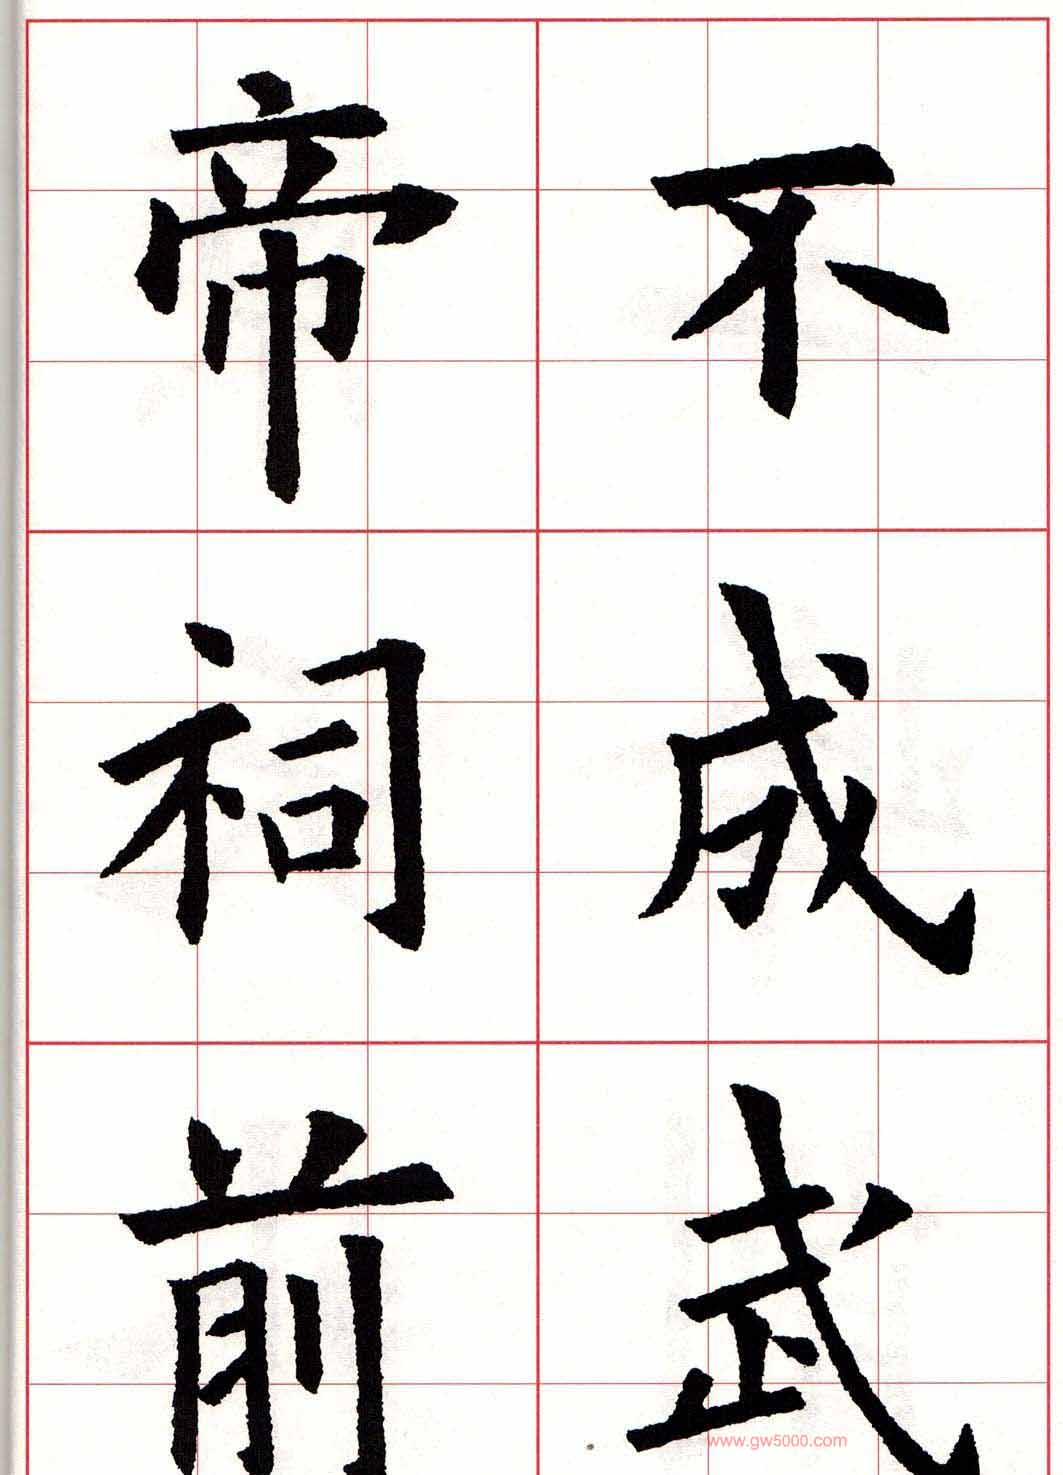 不成武
帝祠前
www.gw5000.com